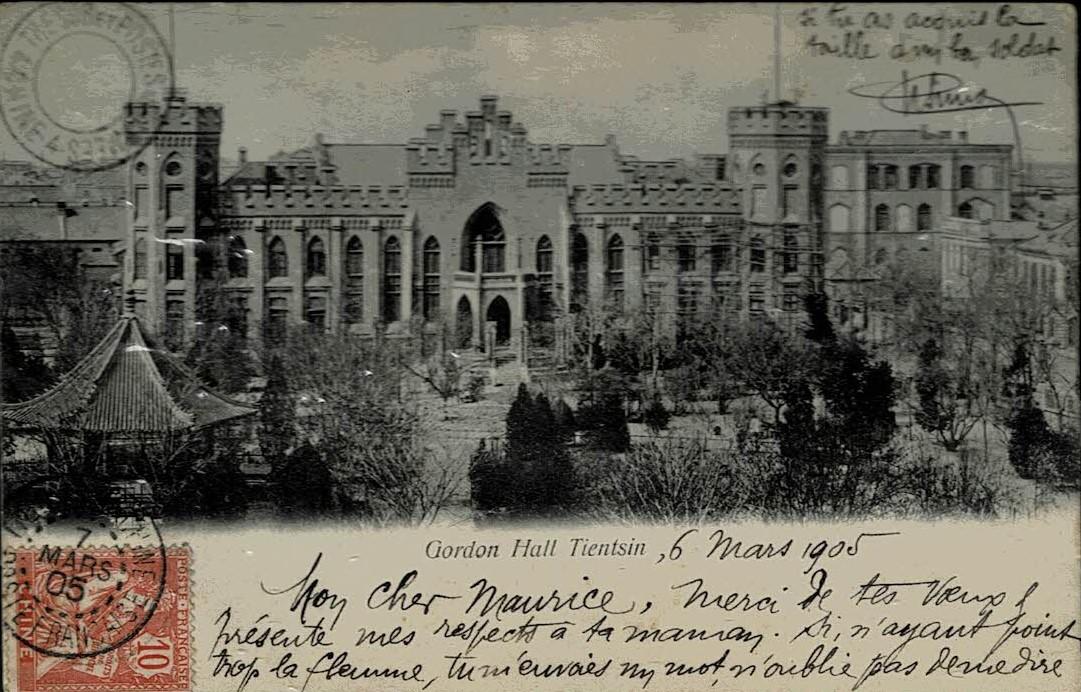 si tu as acquis la
taille d'un beau soldat
Gordon Hall Tientsin, 6 Mars 1905
Mon cher Maurice, Merci de tes vœux &
présente mes respects à ta maman. Si, n'ayant point
trop la flemme, tu m'envoies un mot, n'oublie pas de me dire
7
MARS
05
CHINE
10
POSTE FRANÇAISE